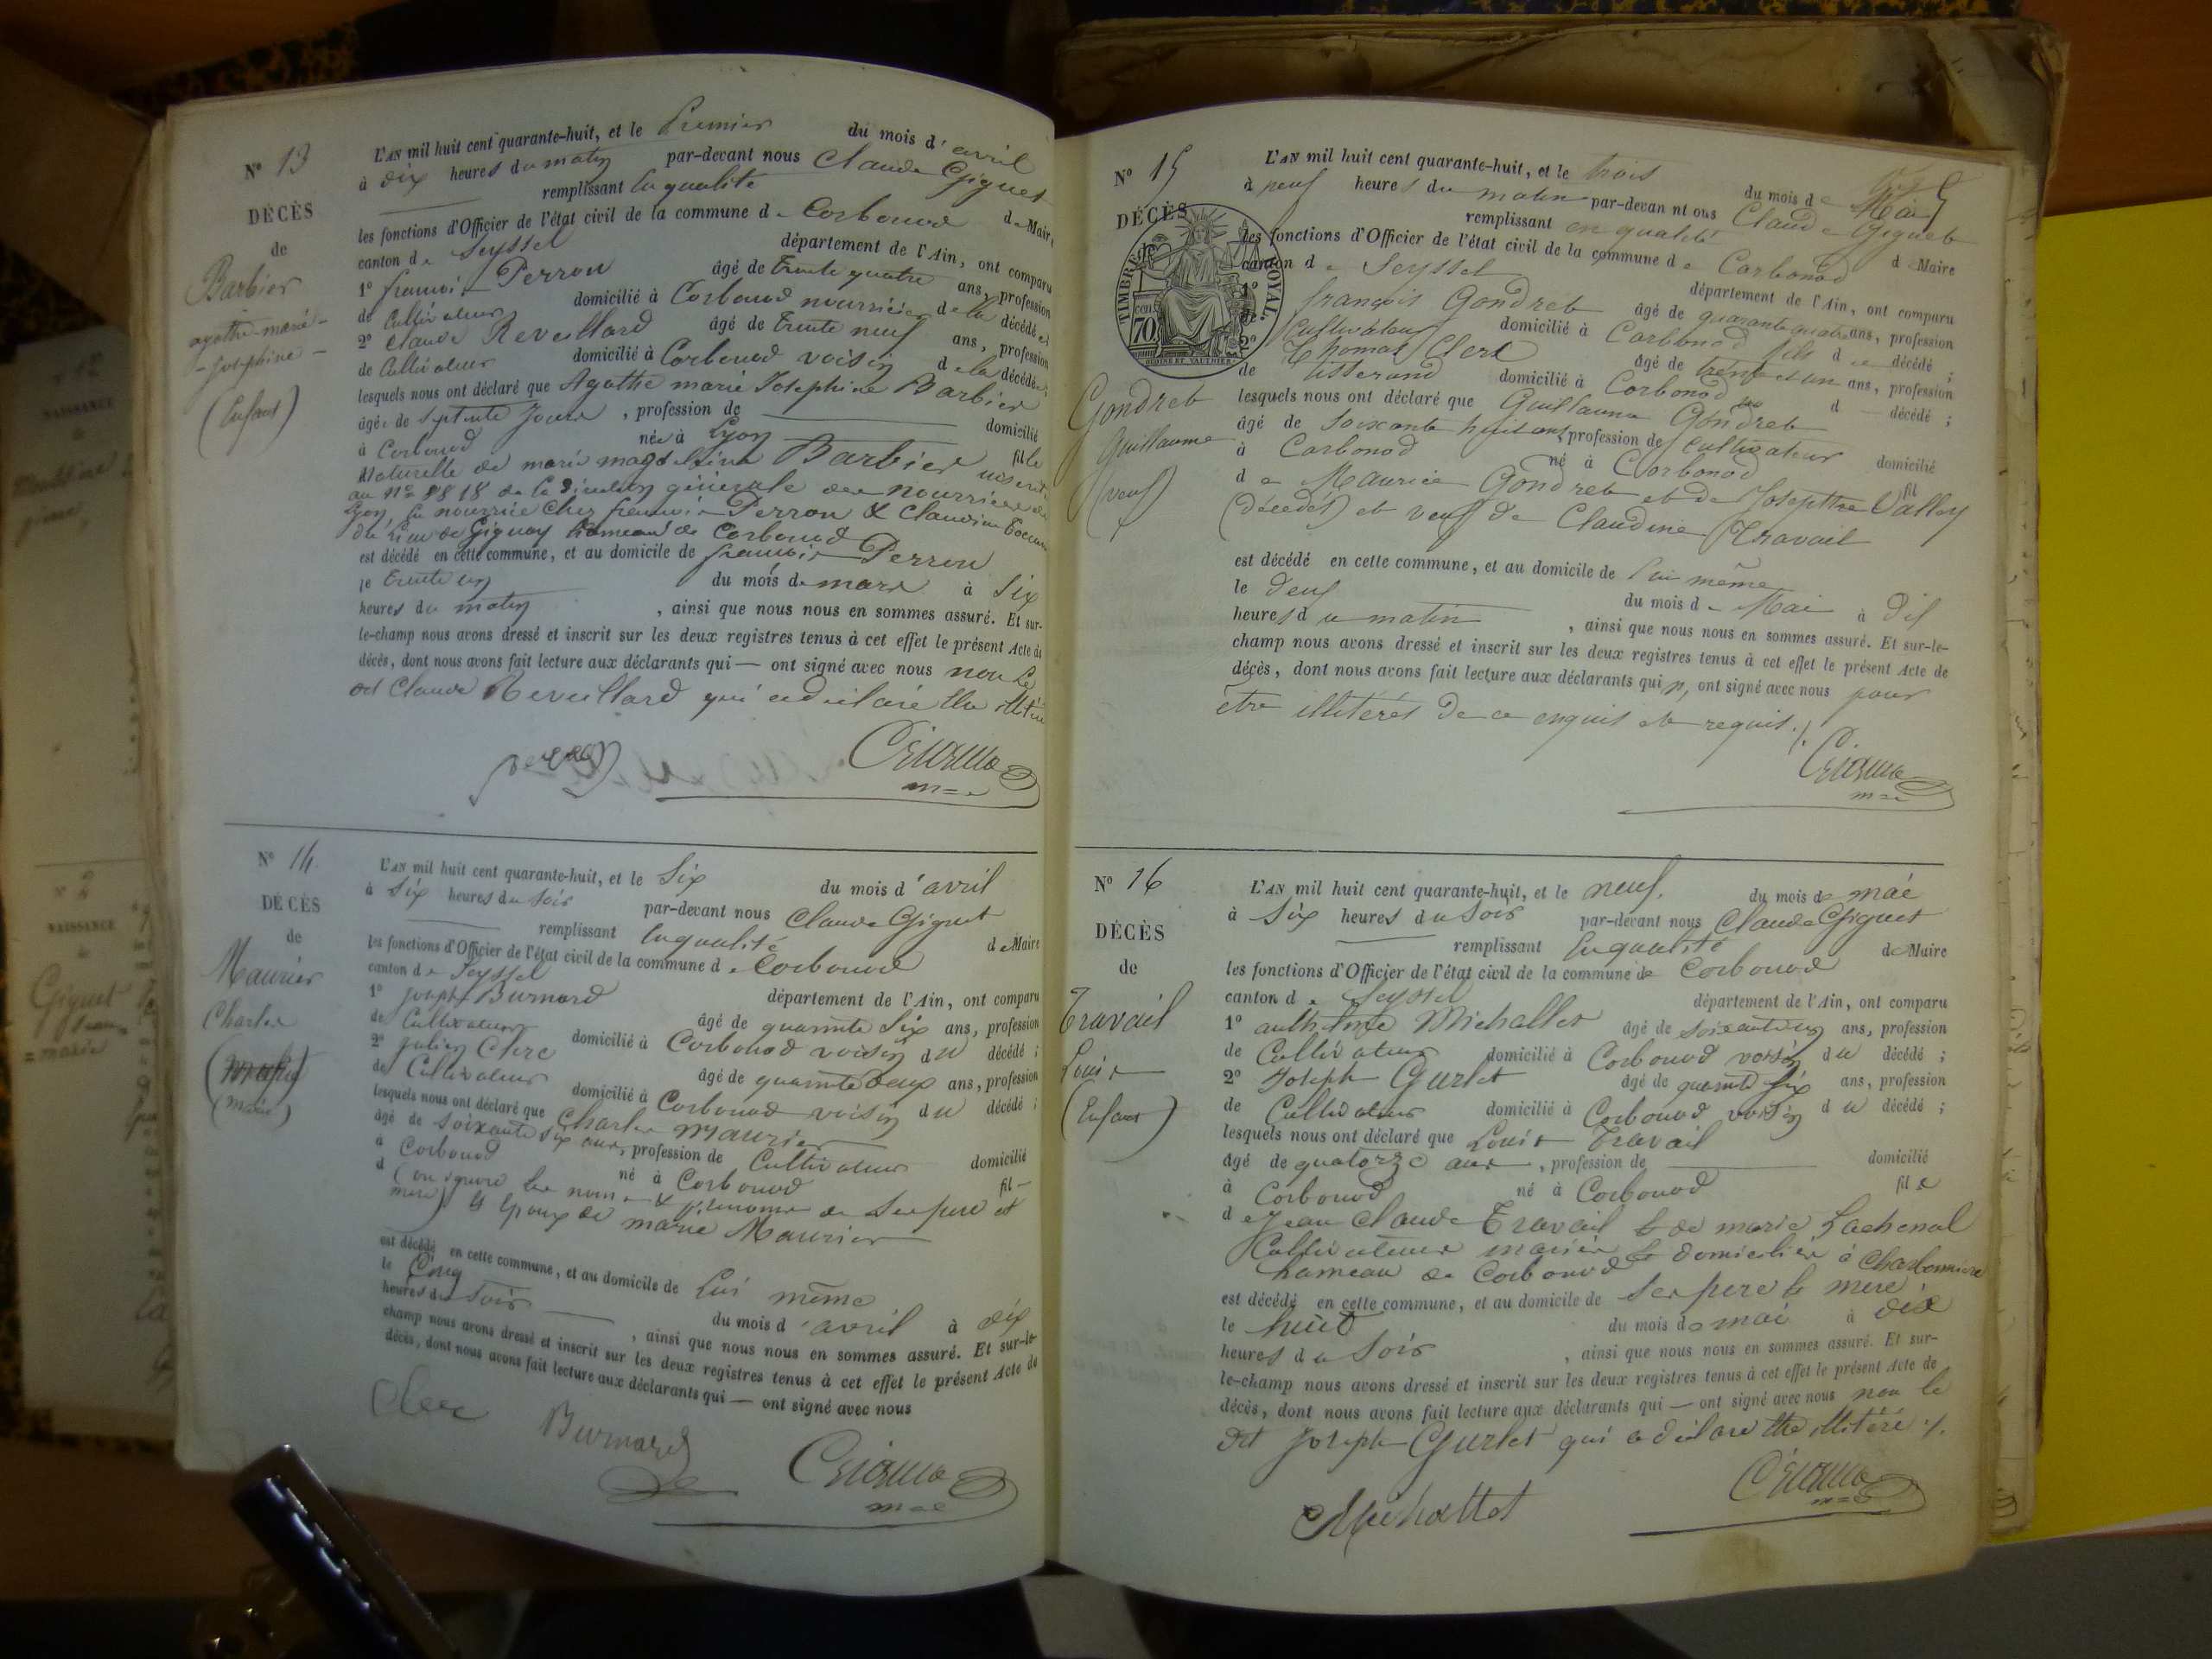 N° 13
DÉCÈS
de
Barbier
agathe-marie-
-Josephine-
(Enfant)
L'AN mil huit cent quarante-huit, et le Premier du mois d'avril
à dix heures du matin par-devant nous Claude Giguet
remplissant en qualité de Maire
les fonctions d'Officier de l'état civil de la commune de Corbonod
canton de Seyssel département de l'Ain, ont comparu
1° françois Perron âgé de trente quatre ans, profession
de Cultivateur domicilié à Corbonod nourricier de la décédée
2° Claude Reveillard âgé de trente neuf ans, profession
de Cultivateur domicilié à Corbonod voisin de la décédée
lesquels nous ont déclaré que Agathe marie Josephine Barbier
âgée de sept Jours, profession de domicilié
à Corbonod née à Lyon fille
Naturelle de marie magdeleine Barbier inscrite
au N° 2818 de la direction générale des nourrices de
Lyon, en nourrice chez françois Perron & Claudine
du Lieu de Gignay hameau de Corbonod
est décédé en cette commune, et au domicile de françois Perron
le trente un du mois de mars à Six
heures du matin, ainsi que nous nous en sommes assuré. Et sur-
le-champ nous avons dressé et inscrit sur les deux registres tenus à cet effet le présent Acte de
décès, dont nous avons fait lecture aux déclarants qui — ont signé avec nous non le
dit Claude Reveillard qui a déclaré être illitéré
N° 14
DÉCÈS
de
Maurier
Charles
(marié)
L'AN mil huit cent quarante-huit, et le Six du mois d'avril
à Six heures du soir par-devant nous Claude Giguet
remplissant en qualité de Maire
les fonctions d'Officier de l'état civil de la commune de Corbonod
canton de Seyssel département de l'Ain, ont comparu
1° joseph Burnard âgé de quarante Six ans, profession
de Cultivateur domicilié à Corbonod voisin du décédé;
2° julien Clerc âgé de quarante deux ans, profession
de Cultivateur domicilié à Corbonod voisin du décédé;
lesquels nous ont déclaré que Charles Maurier
âgé de soixante six ans, profession de Cultivateur domicilié
à Corbonod né à Corbonod fil-
d (on ignore les noms & prénoms de ses pere et
mere) & Epoux de marie Maurier
est décédé en cette commune, et au domicile de Lui même
le Cinq du mois d'avril à dix
heures du soir, ainsi que nous nous en sommes assuré. Et sur-le-
champ nous avons dressé et inscrit sur les deux registres tenus à cet effet le présent Acte de
décès, dont nous avons fait lecture aux déclarants qui — ont signé avec nous
Clerc Burnard
N° 15
DÉCÈS
TIMBRE ROYAL.
70
Gondret
Guillaume
(veuf)
L'AN mil huit cent quarante-huit, et le trois du mois de Mai
à neuf heures du matin par-devan nt ous Claude Gignet
remplissant en qualité de Maire
les fonctions d'Officier de l'état civil de la commune de Corbonod
canton de Seyssel département de l'Ain, ont comparu
1° françois Gondret âgé de quarante quatre ans, profession
de Cultivateur domicilié à Corbonod fils de décédé;
2° Thomas Clerc âgé de trente et un ans, profession
de tisserand domicilié à Corbonod d — décédé;
lesquels nous ont déclaré que Guillaume Gondret
âgé de soixante huit ans, profession de cultivateur domicilié
à Corbonod né à Corbonod fil
de Maurice Gondret et de Josephte Vallay
(décedés) et veuf de Claudine Travail
est décédé en cette commune, et au domicile de lui même
le deux du mois de Mai à dix
heures du matin, ainsi que nous nous en sommes assuré. Et sur-le-
champ nous avons dressé et inscrit sur les deux registres tenus à cet effet le présent Acte de
décès, dont nous avons fait lecture aux déclarants qui n, ont signé avec nous pour
être illitérés de ce enquis et requis.
N° 16
DÉCÈS
de
Travail
Louis
(Enfant)
L'AN mil huit cent quarante-huit, et le neuf. du mois de mai
à Six heures du Soir par-devant nous Claude Giguet
remplissant en qualité de Maire
les fonctions d'Officier de l'état civil de la commune de Corbonod
canton de Seyssel département de l'Ain, ont comparu
1° Michallet âgé de soixante un ans, profession
de Cultivateur domicilié à Corbonod voisin du décédé;
2° Joseph Gurlet âgé de quarante Six ans, profession
de Cultivateur domicilié à Corbonod voisin du décédé;
lesquels nous ont déclaré que Louis Travail
âgé de quatorze ans, profession de domicilié
à Corbonod né à Corbonod fils
de Jean Claude Travail & de marie Lachenal
Cultivateurs mariés & domiciliés à Charbonniere
hameau de Corbonod
est décédé en cette commune, et au domicile de Ses pere & mere
le huit du mois de mai à dix
heures du Soir, ainsi que nous nous en sommes assuré. Et sur-
le-champ nous avons dressé et inscrit sur les deux registres tenus à cet effet le présent Acte de
décès, dont nous avons fait lecture aux déclarants qui — ont signé avec nous non le
dit Joseph Gurlet qui a déclaré être illitéré
Michallet
N° 2
NAISSANCE
Giguet